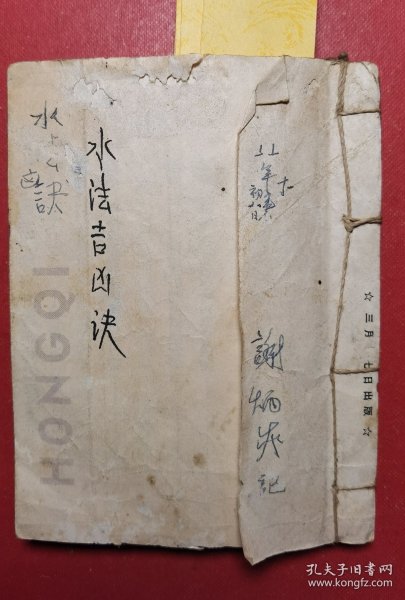 ☆ 三月 七日出版 ☆
年
初八日
謝炳炎記
水法吉凶诀
水
凶
訣
HONGQI
孔夫子旧书网
www.kongfz.com